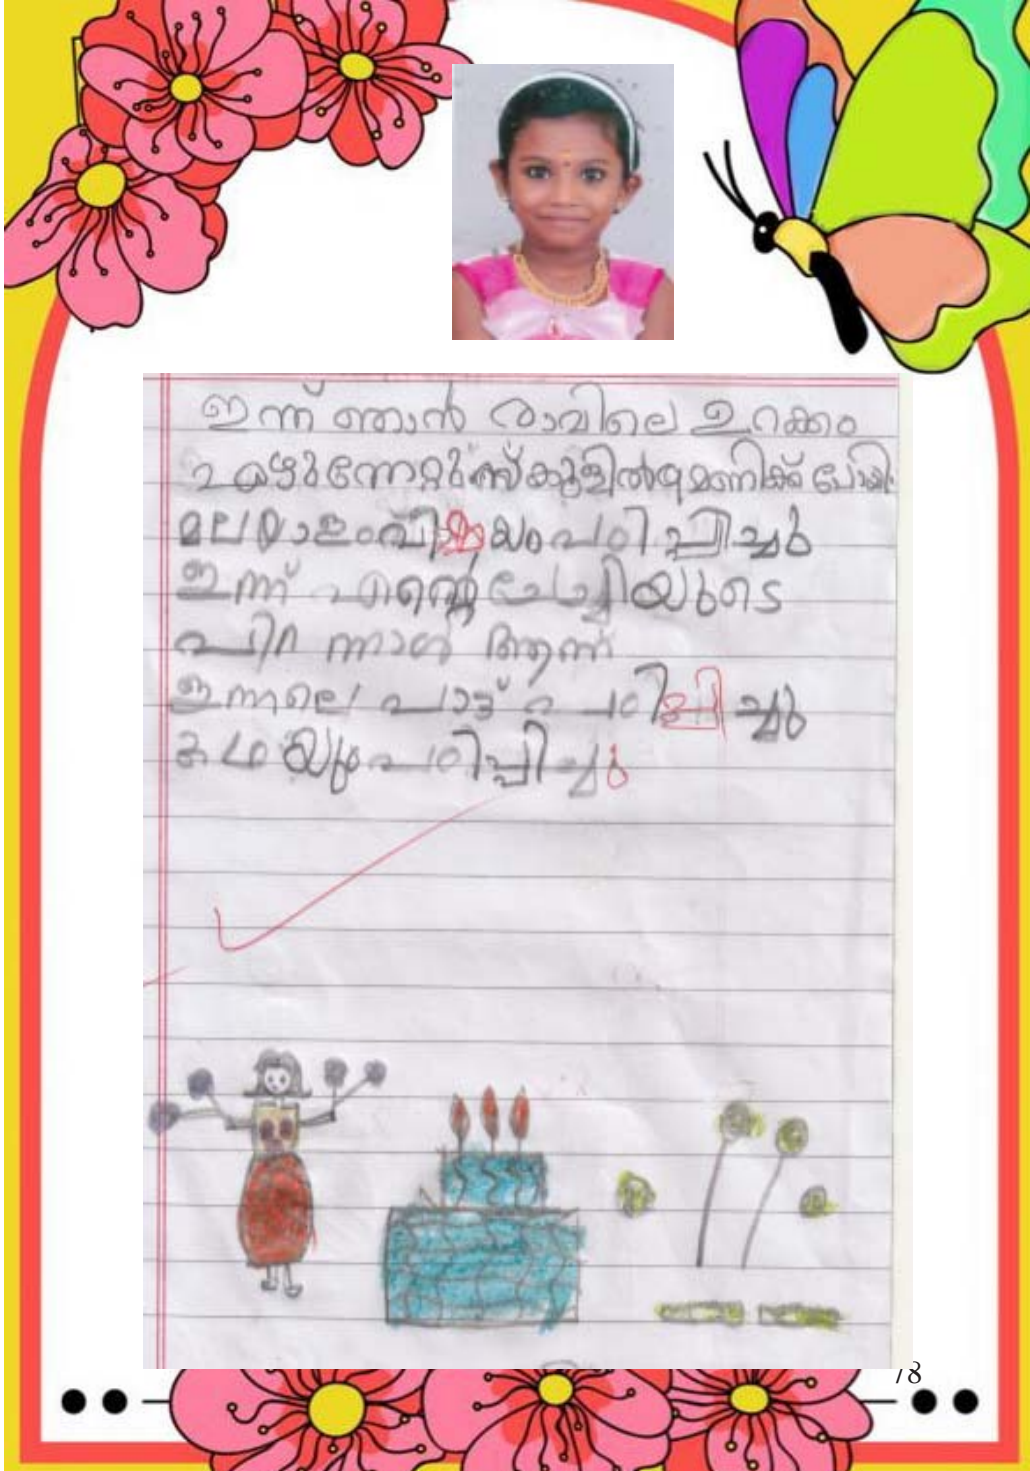 ഇന്ന് ഞാൻ രാവിലെ ഉറക്കം
എഴുന്നേറ്റു സ്കൂളിൽ 9 മണിക്ക് പോയി
മലയാളം വിഷയം പഠിപ്പിച്ചു
ഇന്ന് എന്റെ ചേച്ചിയുടെ
പിറന്നാൾ ആണ്
ഇന്നലെ പാട്ട് പഠിപ്പിച്ചു
കഥയും പഠിപ്പിച്ചു
78